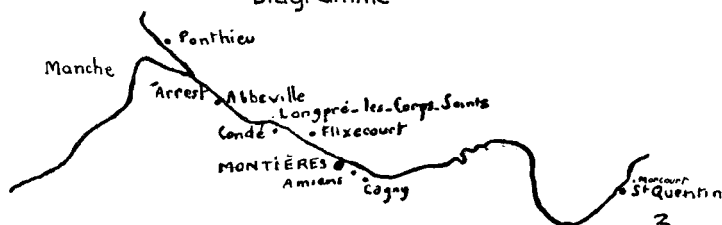 Diagramme
Ponthieu
Manche
Arrest
Abbeville
Longpré-les-Corps-Saints
Condé
Flixecourt
MONTIÈRES
Amiens
Cagny
Morcourt
St Quentin